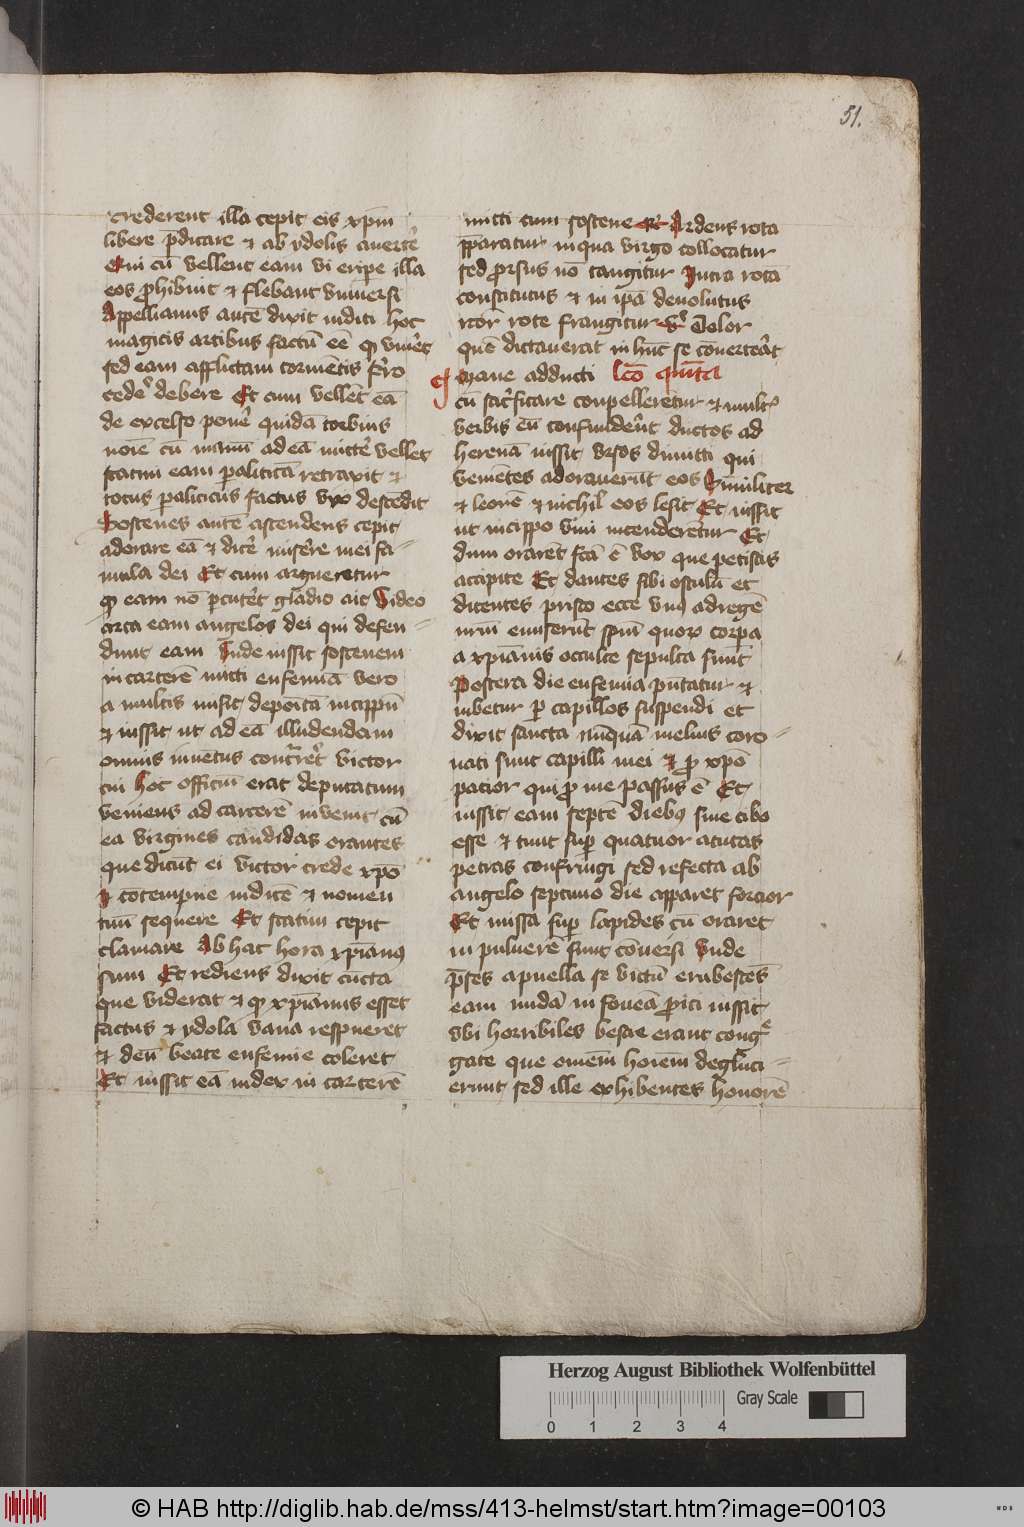 51.
crederent illa cepit eis xp̄m
libere p̄dicare et ab ydolis auerte᷒
Qui cū vellent eam vi eripe illa
eos prohibuit et flebant vniuersi
Appellianus autē dixit iudici hoc
magicis artibus factū eē vniꝰet
sed eam afflictam tormētis ferro
cedē debere Et cum vellēt eā
de excelso ponē quidā coruus
noīe cū manū ad eā mittē vellet
statim eam paliticā retraxit et
totus paliticus factus vix descēdit
Sostenes autē ascendens cepit
adorare eā et dicē miserē mei fa-
mula dei Et cum argueretur
qd eam nō percutēt gladio ait Video
circa eam angelos dei qui defen-
dunt eam Inde iussit sostenem
in carcerē mitti eufemiā vero
a multis misit in cippū
et iussit ut ad eā illudendam
omnis iuuētus victor
cui hoc officiū erat deputatum
veniens ad carcerē inuenit cū
ea virgines candidas orantes
que dicūt ei victor crede xpō
et iudicē et nomen
tuū sequere Et statim cepit
clamare Ab hac hora xpīanꝰ
sum Et rediens dixit cūcta
que viderat et qd xpīanus esset
factus et ydola vana respueret
et deū beate eufemie coleret
Et iussit eā iudex in carcerē
mitti cum sostene Et Ardens rota
pparatur in qua virgo collocatur
sed prorsus nō tangitur Intra rotā
constitutus et in ipā deuolutus
rtor rote frangitur vꝰ Dolor
quē dictauerat in hūc se cōuerteāt
Mane adducti Lcō quīta
cū sacrificare conpellerētur et multꝭ
verbis eū confunderēt ductos ad
herenā iussit vrsos dimitti qui
venientes adorauerūt eos Similiter
et leonē et nichil eos lesit Et iussit
ut in cippo vini incenderētur Et
dum orarēt fcā ē vox que petistis
accipite Et dantes sibi osculū et
dicentes pristo ecce vnꝰ ad regē
nrm emiserūt spm̄ quorum corpa
a xpīanis occulte sepulta sunt
Postera die eufemia putatur et
iubetur per capillos suspendi et
dixit sancta nūquā melius coro-
nati sunt capilli mei et pro xpō
patior qui pro me passus ē Et
iussit eam septē diebꝰ sine cibo
esse et tunc sup quatuor acutas
petras confringi sed refecta ab
angelo septimo die apparet forcior
Et missa sup lapides cū oraret
in puluerē sunt cōuersi Vnde
pses a puella se victū erubescēs
eam nudā in foueā proici iussit
vbi horribiles bestie erant cong͛
gate que omēm hoīem degluci-
erunt sed ille exhibentes honorē
Herzog August Bibliothek Wolfenbüttel
Gray Scale
0 1 2 3 4
© HAB http://diglib.hab.de/mss/413-helmst/start.htm?image=00103
WDB